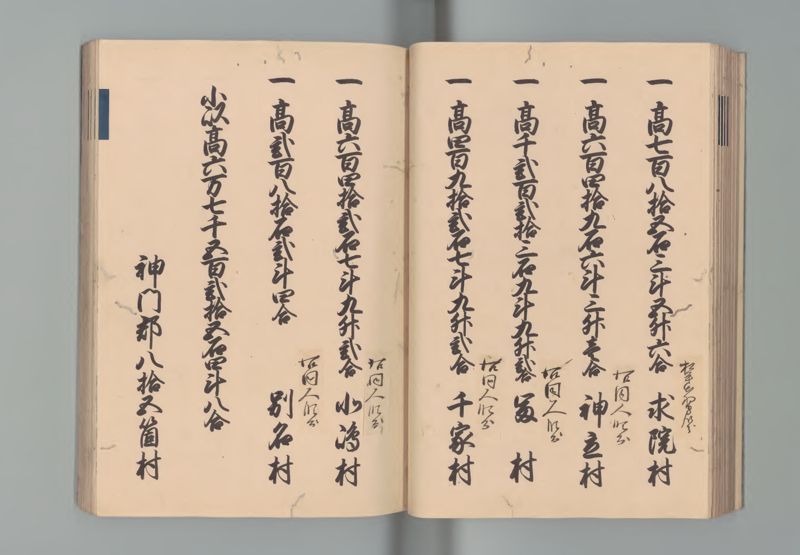 一 高七百八拾五石三斗五升六合 求院村
一 高六百四拾九石六斗三升壱合 神立村
一 高千弐百弐拾三石九斗九升弐合 富村
一 高四百九拾弐石七斗九升弐合 千家村
一 高六百四拾弐石七斗九升弐合 小嶋村
一 高弐百八拾石弐斗四合 別名村
小以高六万七千五百弐拾五石四斗八合
神門郡八拾五箇村